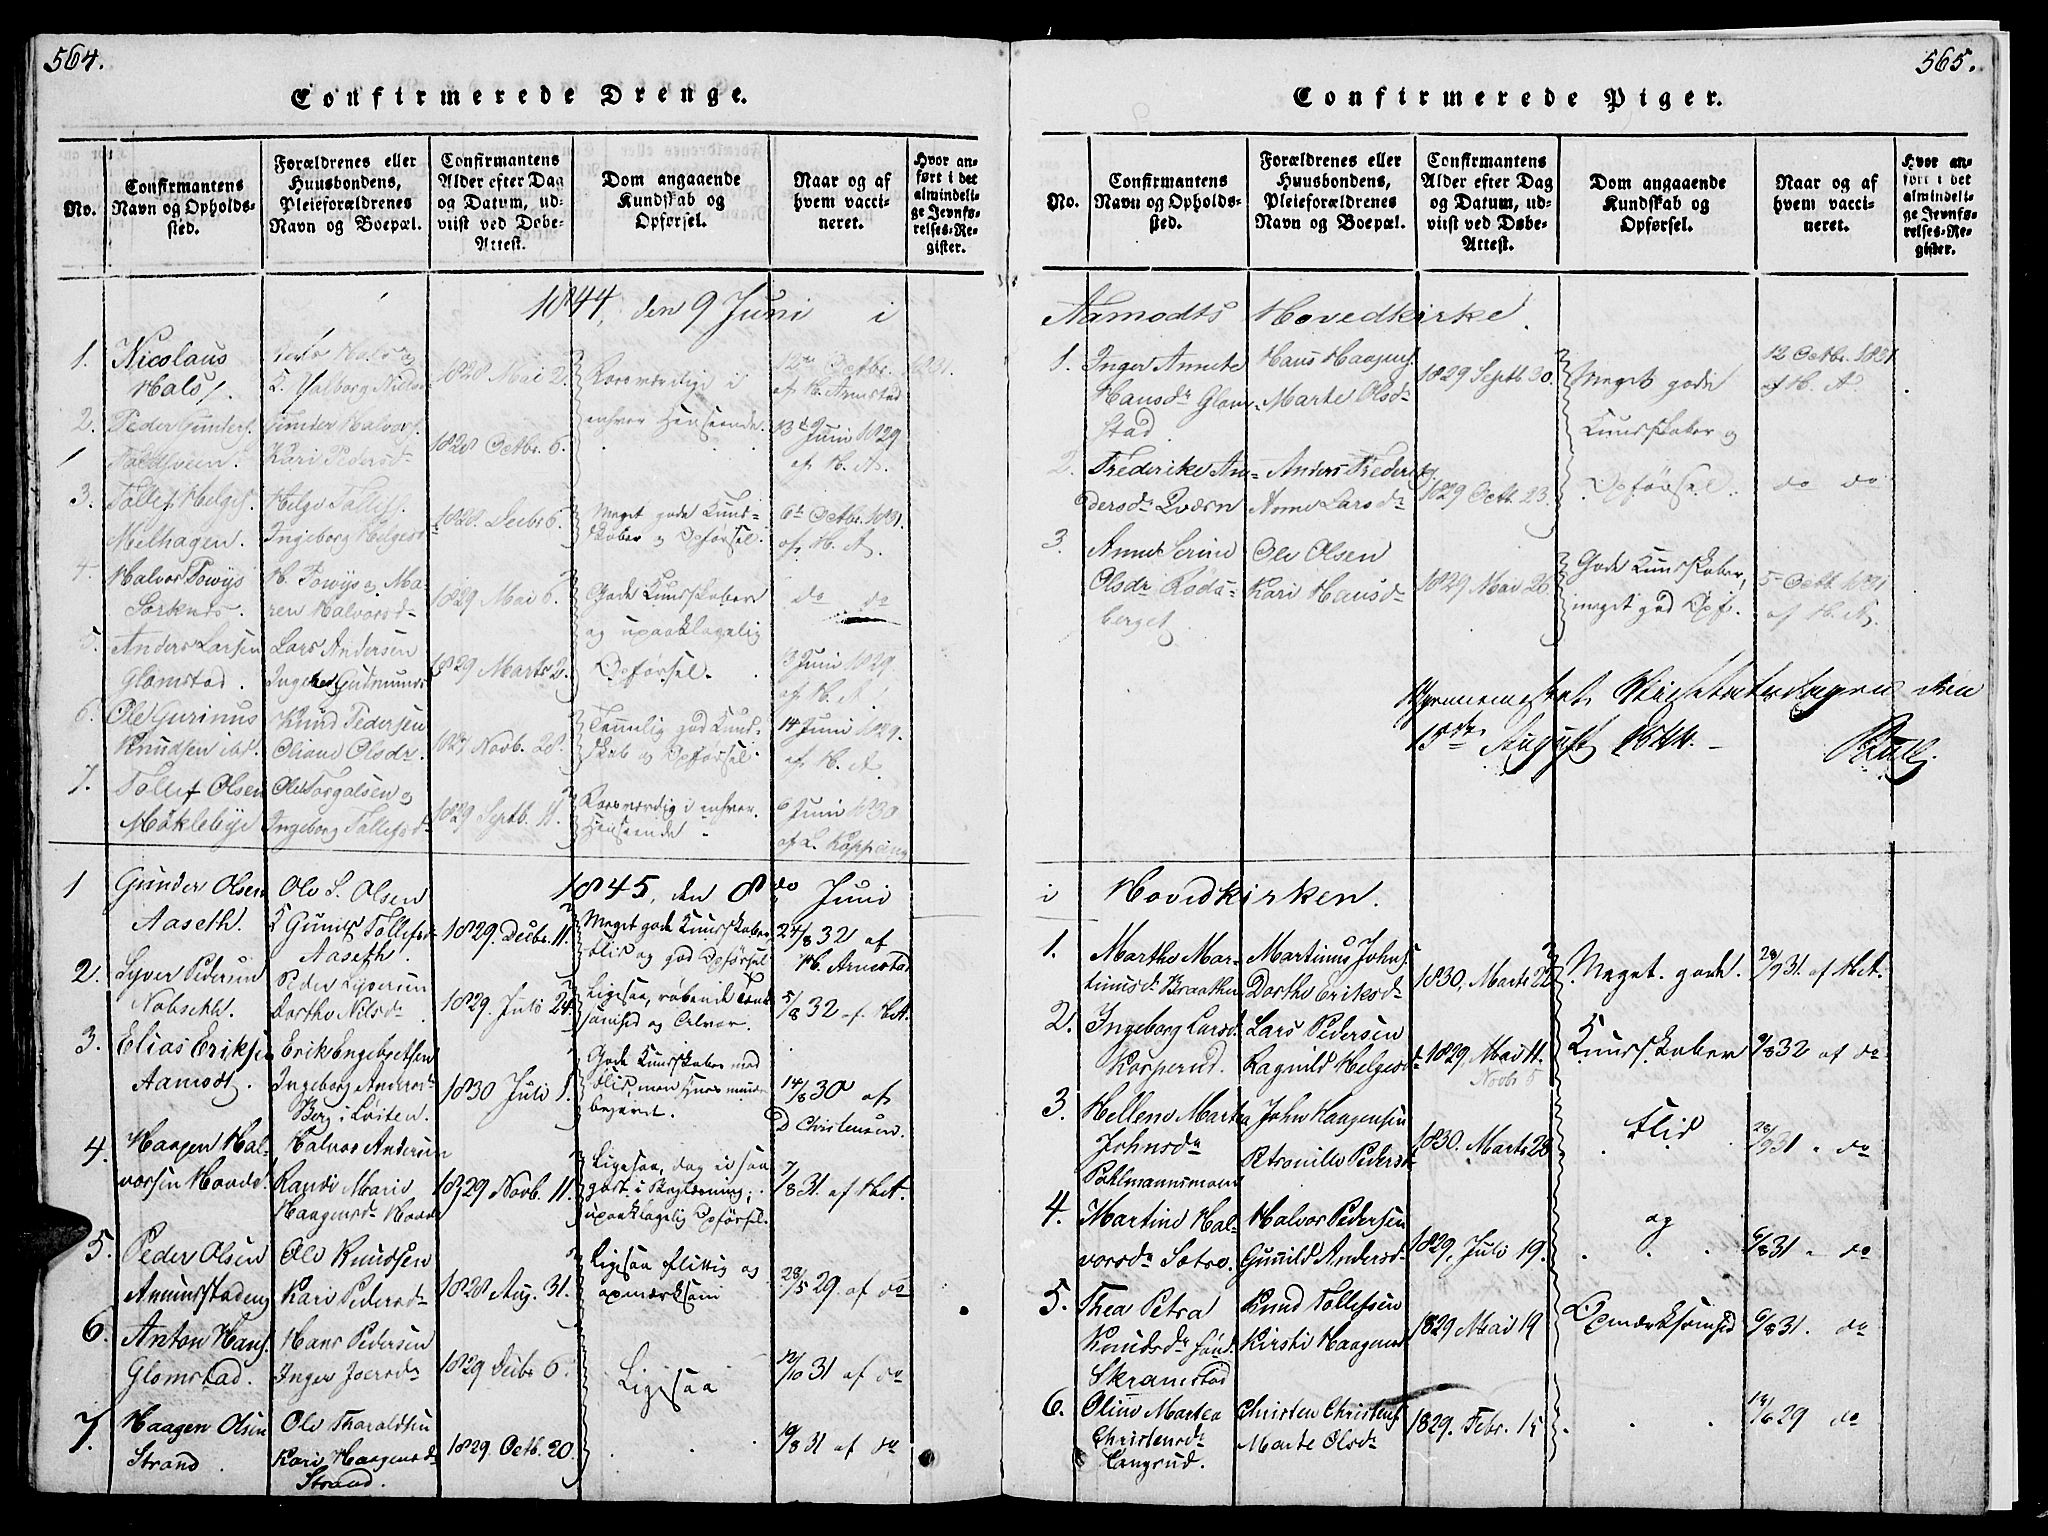 564.
Confirmerede Drenge.
No.
Confirmantens Navn og Opholds-sted.
Forældrenes eller Huusbondens, Pleieforældrenes Navn og Boepæl.
Confirmantens Alder efter Dag og Datum, ud-viist ved Døbe-Attest.
Dom angaaende Kundskab og Opførsel.
Naar og af hvem vacci-neret.
Hvor an-ført i det almindeli-ge Jevnfø-relses-Re-gister.
1844, den 9 Juni i
1. Nicolaus Hals
1828 Mai 2.
Roesværdige i enhver Henseende.
12te Octbr. 1831. af H. Arnestad
2. Peder Gunders.
Gunder Halvors. Kari Pedersdr
1828 Octbr. 6.
13de Juni 1829 af H. A.
3. Tollef Helges. Melhagen.
Helge Tollefs. Ingeborg Helgesdr
1828 Decbr 6.
Meget gode Kund-skaber og Opførsel.
6te Octbr. 1831. af H. A.
4. Halvor Sorknes.
Maren Halvorsdr
1829 Mai 6.
Gode Kundskaber og upaaklagelig Opførsel.
do do
5. Anders Larsen Glomstad.
Lars Andersen
1829 Marts 2.
3 Juni 1829 af H. A.
6. Ole Gurinus Knudsen ibd.
Knud Pedersen Oleane Olsdr.
1827 Novb. 28.
Temmelig god Kund-skab og Opførsel.
14 Juni 1829. af H. A.
7. Tollef Olsen Møklebye
Ole Torgalsen og Ingeborg Tollefsdr
1829 Septb. 11.
Roesværdig i enhver Henseende.
6 Juni 1830 af L. Kopp
1845, den 8do Juni
1 Gunder Olsen Aaseth.
Ole S. Olsen Gunil Tollefsdr Aaseth.
1829. Decbr. 11.
Meget gode Kundskaber, Flid og god Opførsel
24/8 32 af H. Arnestad
2. Syver Pedersen Nabseth.
Peder Syversen Dorthe Nilsdr
1829. Juli 24.
5/8 32 af H A.
3. Elias Eriksen Aamodt.
Erik Engebretsen Ingeborg Andersdr Berg i Løiten.
1830 Juli 1.
Gode Kundskaber med Flid, men
14/8 30 af D Christensen.
4. Haagen Hal-vorsen Hovde.
Halvor Andersen Randi Marie Haagensdr Hovde
1829 Novb. 11.
Ligesaa, dog ei saa upaaklagelig Opførsel.
7/8 31. af H A.
5. Peder Olsen
Ole Knudsen Kari Pedersdr
1828 Aug. 31.
Ligesaa flittig og opmærksom
28/5 29 af do
6. Anton Hans. Glomstad.
Hans Pedersen Inger Joersdr
1829 Decbr 6.
Ligesaa
12/10 31 af do
7. Haagen Olsen Strand
Ole Tharaldsen Kari Haagensdr Strand.
1829 Octb. 20.
10/8 31 af do
565.
Confirmerede Piger.
No.
Confirmantens Navn og Opholds-sted.
Forældrenes eller Huusbondens, Pleieforældrenes Navn og Boepæl.
Confirmantens Alder efter Dag og Datum, ud-viist ved Døbe-Attest.
Dom angaaende Kundskab og Opførsel.
Naar og af hvem vacci-neret.
Hvor an-ført i det almindeli-ge Jevnfø-relses-Re-gister.
Aamodts Hovedkirke.
1. Inger Annette Hansdr Glom-stad
Hans Haagens. Marte Olsdr
1829 Septb. 30.
Meget gode Kundskaber og Opførsel.
12 Octbr. 1831. af H. A
2. Frederike An-dersdr Qværn
Anders Frederiks Anne Larsdr
1829 Octb. 23.
do do
3. Anne Serine Olsdr Røds-berget
Ole Olsen Kari Hansdr
1829 Mai 26.
Gode Kundskaber, meget god Opf.
5 Octb. 1831 af H. A.
Gjennemseet. den 15de August 1844. –
i Hovedkirken.
1. Marthe Mar-tinusdr Braathen
Martinus Johns. Dorthe Eriksdr
1830. Marts 22
Meget gode.
28/9 31. af H A.
2. Ingeborg Larsd. Kosperud.
Lars Pedersen Ragnild Helgesdr
1829, Mai 11. Novbr 6
Kundskaber
9/8 32 af do
3. Hellene Martea Johnsdr Pohlmannsmoen
John Haagensen Petronille Pedersdr
1830. Marts 28
Flid
28/9 31 " do
4. Martine Hal-vorsdr Sætre.
Halvor Pedersen Gunild Andersdr
1829. Juli 19.
og
6/8 31 " do
5. Thea Petra Knudsdr Skramstad
Knud Tollefsen Kirsti Haagensd
1829 Mai 19
Opmærksomhed
6/8 31. do
6. Oline Martea Christensdr Langrud.
Christen Christens. Marte Olsdr
1829. Febr. 15
14/6 29 do